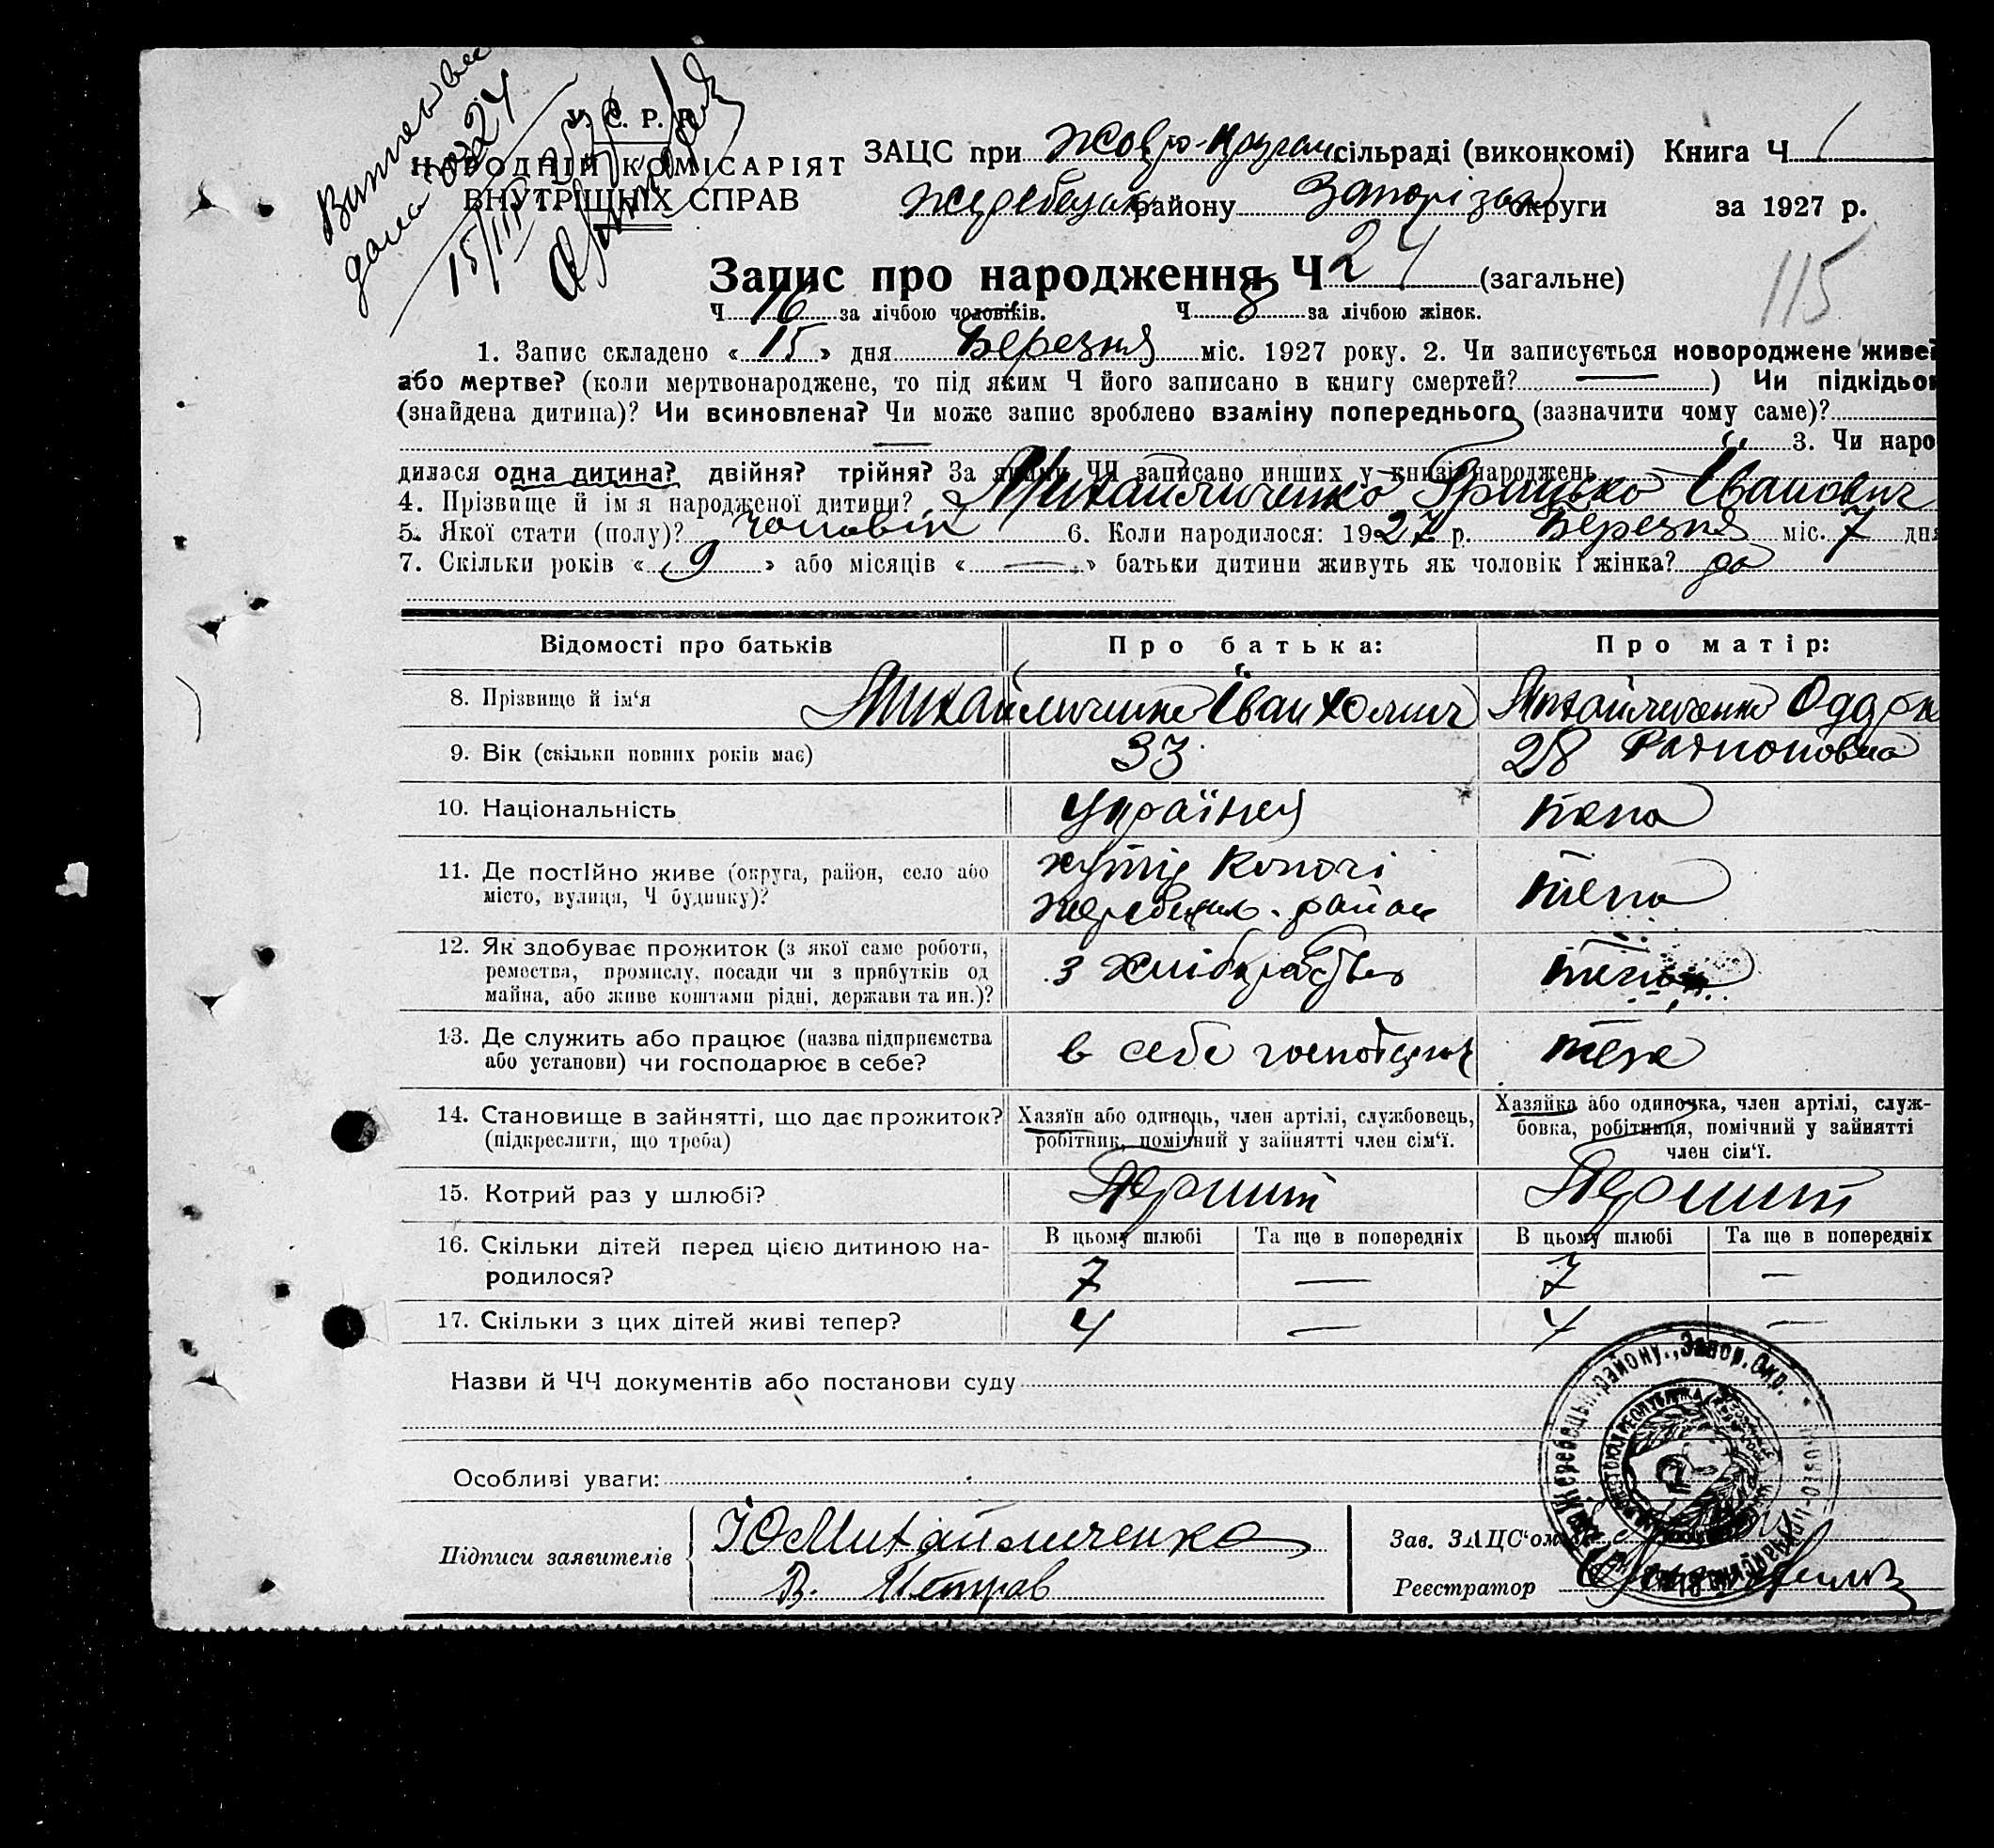 У. С. Р. Р.
НАРОДНІЙ КОМІСАРІЯТ
ВНУТРІШНІХ СПРАВ
дана 24
15/III
ЗАЦС при сільраді (виконкомі) Книга Ч 1
району Запорізьк округи за 1927 р.
115
Запис про народження Ч 24 (загальне)
Ч 16 за лічбою чоловіків. Ч 8 за лічбою жінок.
1. Запис складено « 15 » дня Березня міс. 1927 року. 2. Чи записується новороджене живе?
або мертве? (коли мертвонароджене, то під яким Ч його записано в книгу смертей? — ) Чи підкідьок
(знайдена дитина)? Чи всиновлена? Чи може запис зроблено взаміну попереднього (зазначити чому саме)?
— 3. Чи наро
дилася одна дитина? двійня? трійня? За якими ЧЧ записано инших у книзі народжень
4. Прізвище й ім я народженої дитини? Михайличенко Грицько Іванович
5. Якої стати (полу)? чоловік 6. Коли народилося: 1927 р. Березня міс. 7 дня
7. Скільки років « 9 » або місяців « — » батьки дитини живуть як чоловік і жінка? да
Відомості про батьків Про батька: Про матір:
8. Прізвище й ім‘я Михайличенко Іван Михайличенко
9. Вік (скільки повних років має) 33 28
10. Національність Українец тепа
11. Де постійно живе (округа, район, село або хутір Копочі
місто, вулиця, Ч будинку)? Жеребецьк. район тепа
12. Як здобуває прожиток (з якої саме роботи,
ремества, промислу, посади чи з прибутків од з хліборобства
майна, або живе коштами рідні, держави та ин.)?
13. Де служить або працює (назва підприємства в себе
або установи) чи господарює в себе?
14. Становище в зайнятті, що дає прожиток? Хазяїн або одинець, член артілі, службовець, Хазяйка або одиночка, член артілі, служ-
(підкреслити, що треба) робітник, помічний у зайнятті член сім‘ї. бовка, робітниця, помічний у зайнятті
член сім‘ї.
15. Котрий раз у шлюбі? Перший Перший
16. Скільки дітей перед цією дитиною на- В цьому шлюбі Та ще в попередніх В цьому шлюбі Та ще в попередніх
родилося? 7 — 7 —
17. Скільки з цих дітей живі тепер? 4 — 4 —
Назви й ЧЧ документів або постанови суду
Особливі уваги:
Підписи заявителів ІЮМихайличенко
В. Петров
Зав. ЗАЦС‘ом
Реєстратор
Жеребецьк. району, Запор. Окр.